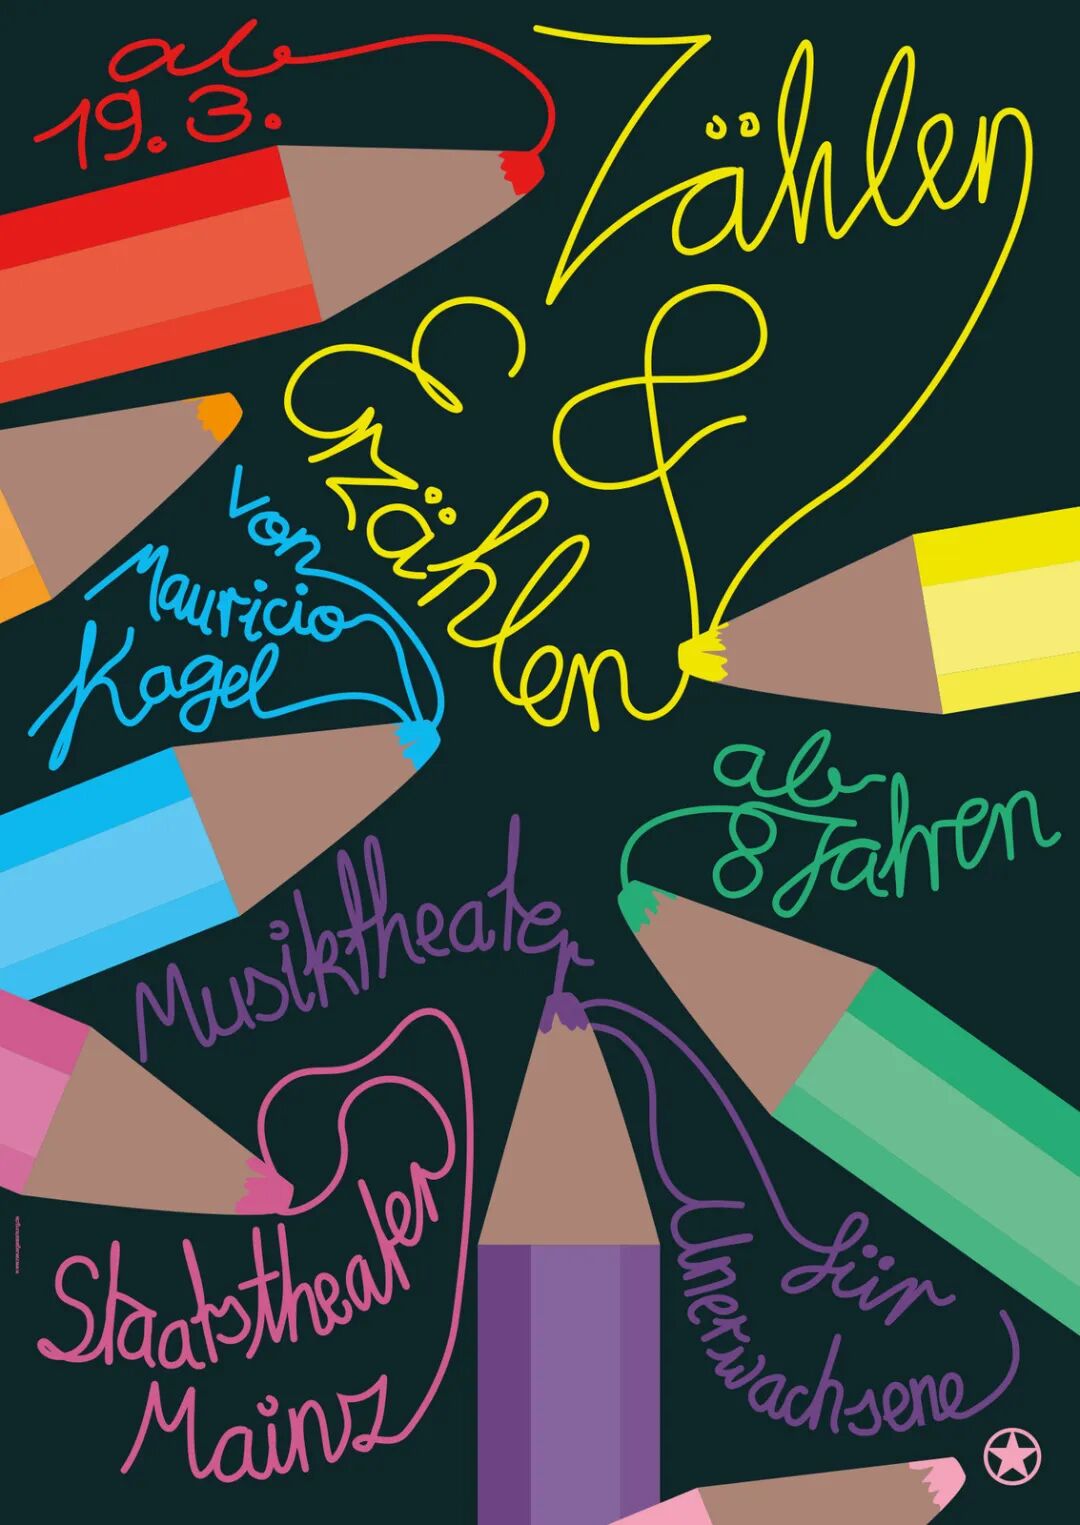 ab
19. 3.
Zählen
&
Erzählen
von
Mauricio
Kagel
ab
8 Jahren
Musiktheater
für
Unerwachsene
Staatstheater
Mainz